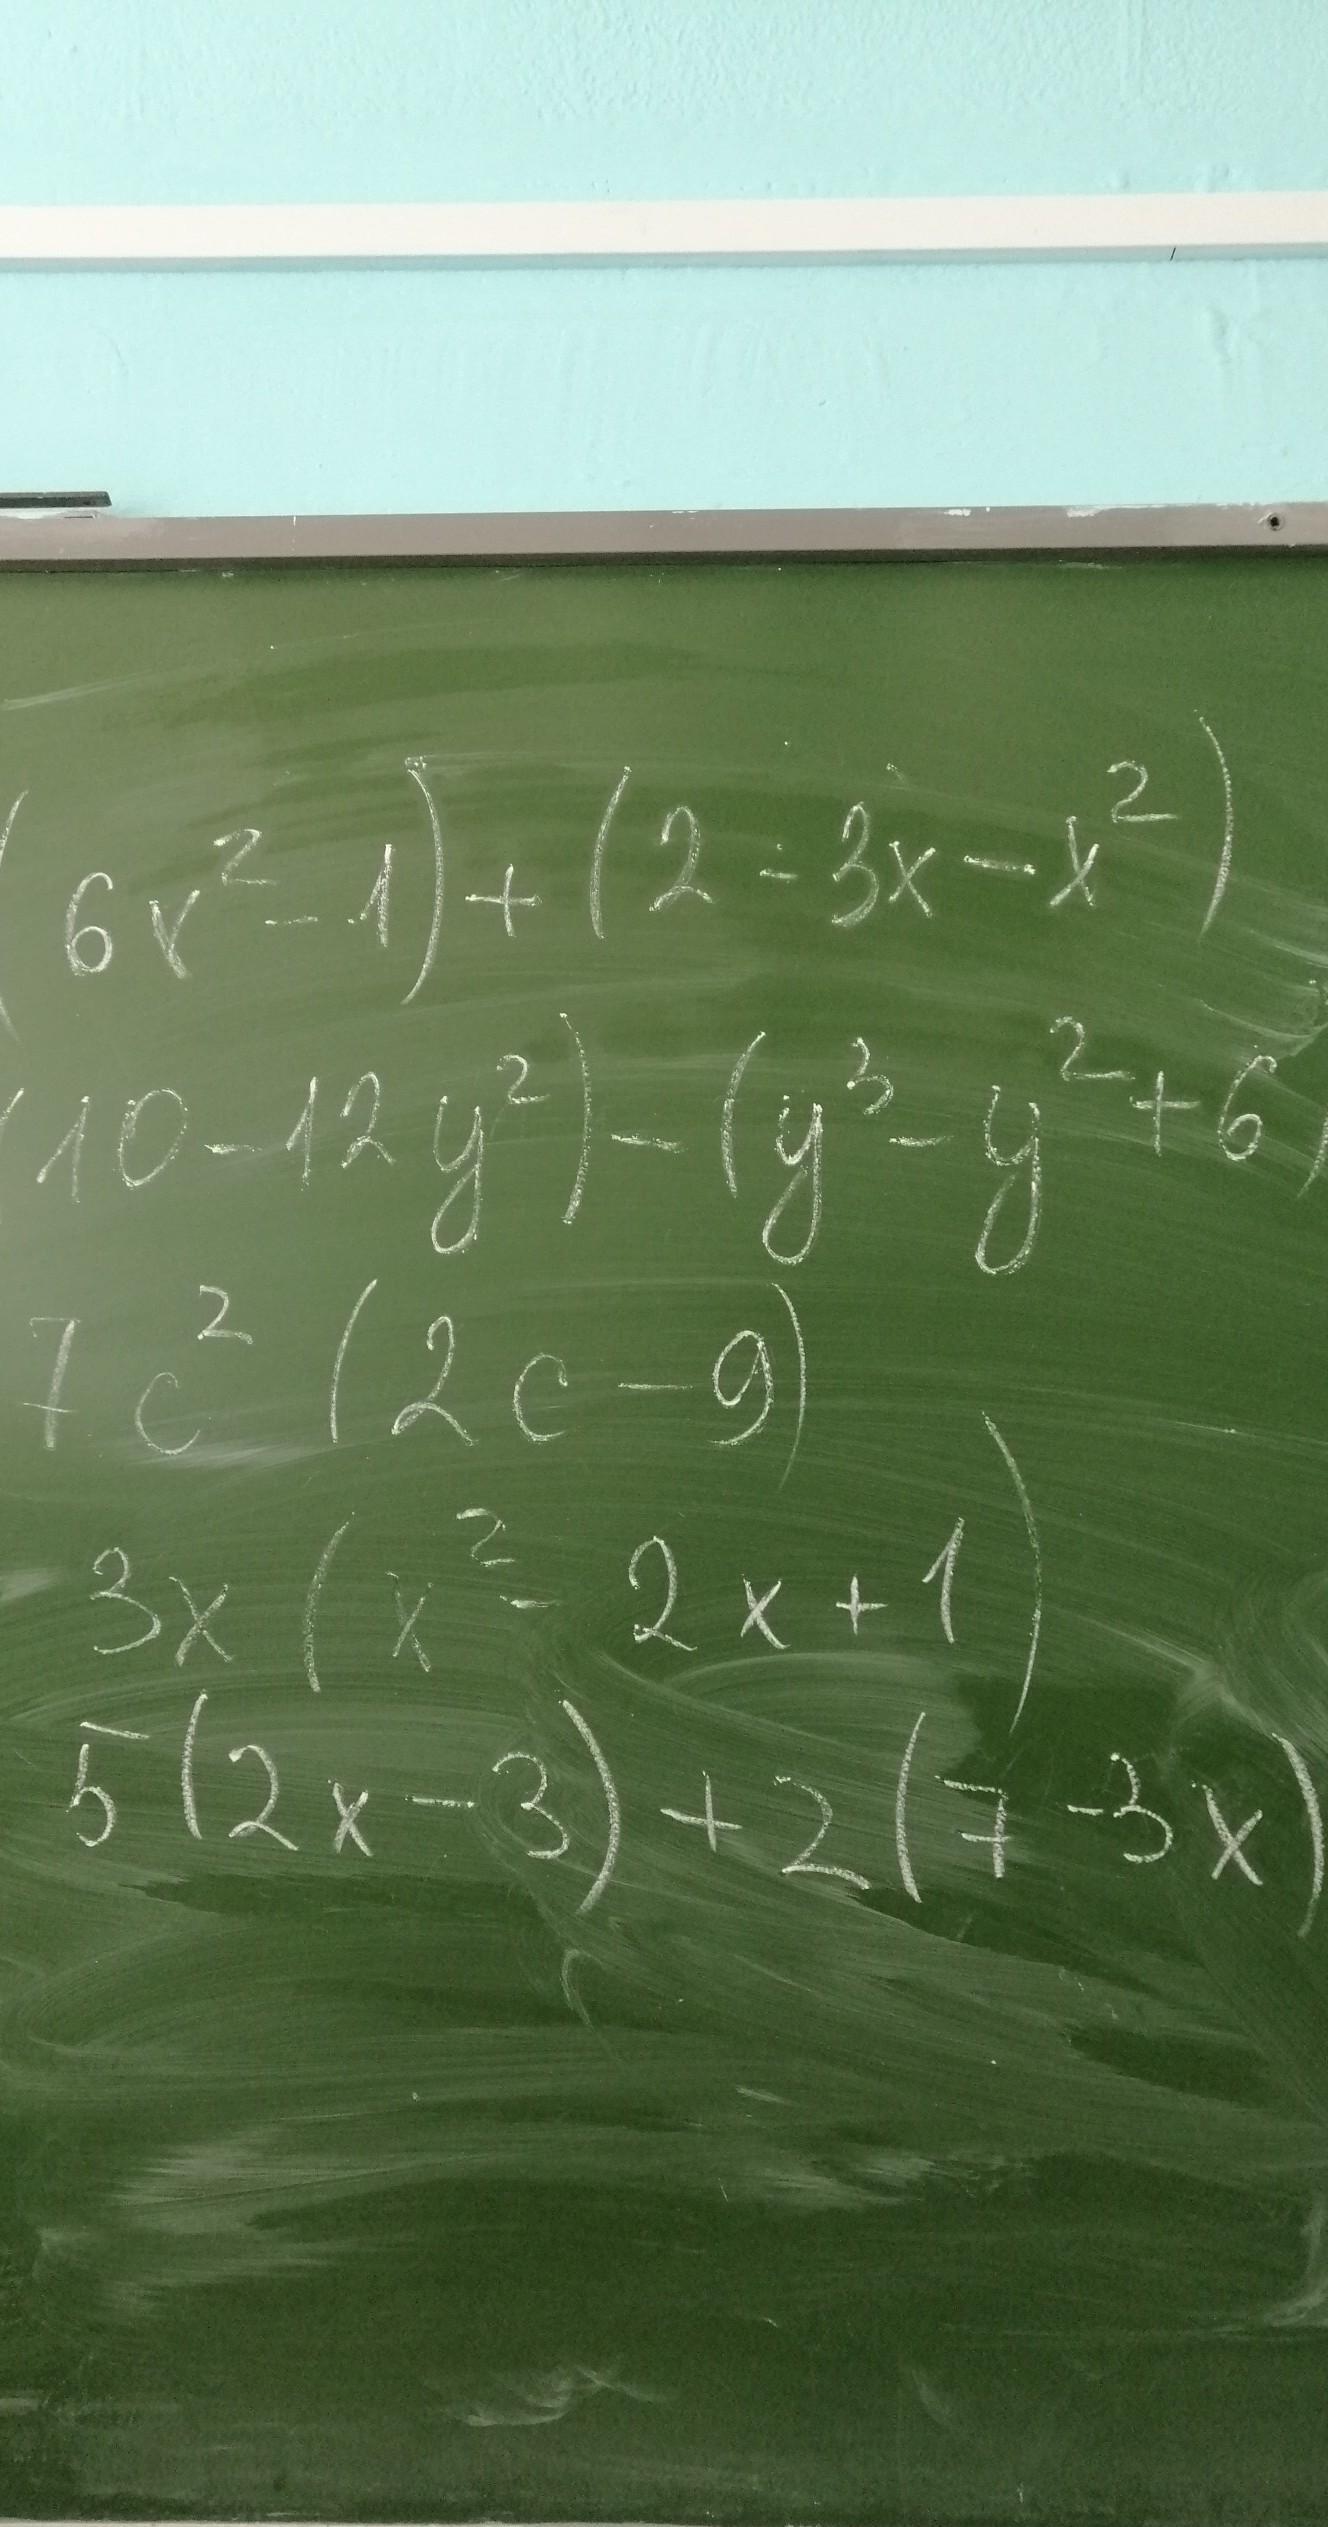 (6x² - 1) + (2 - 3x - x²)
(10 - 12y²) - (y³ - y² + 6)
7c² (2c - 9)
3x (x² - 2x + 1)
5(2x - 3) + 2(7 - 3x)